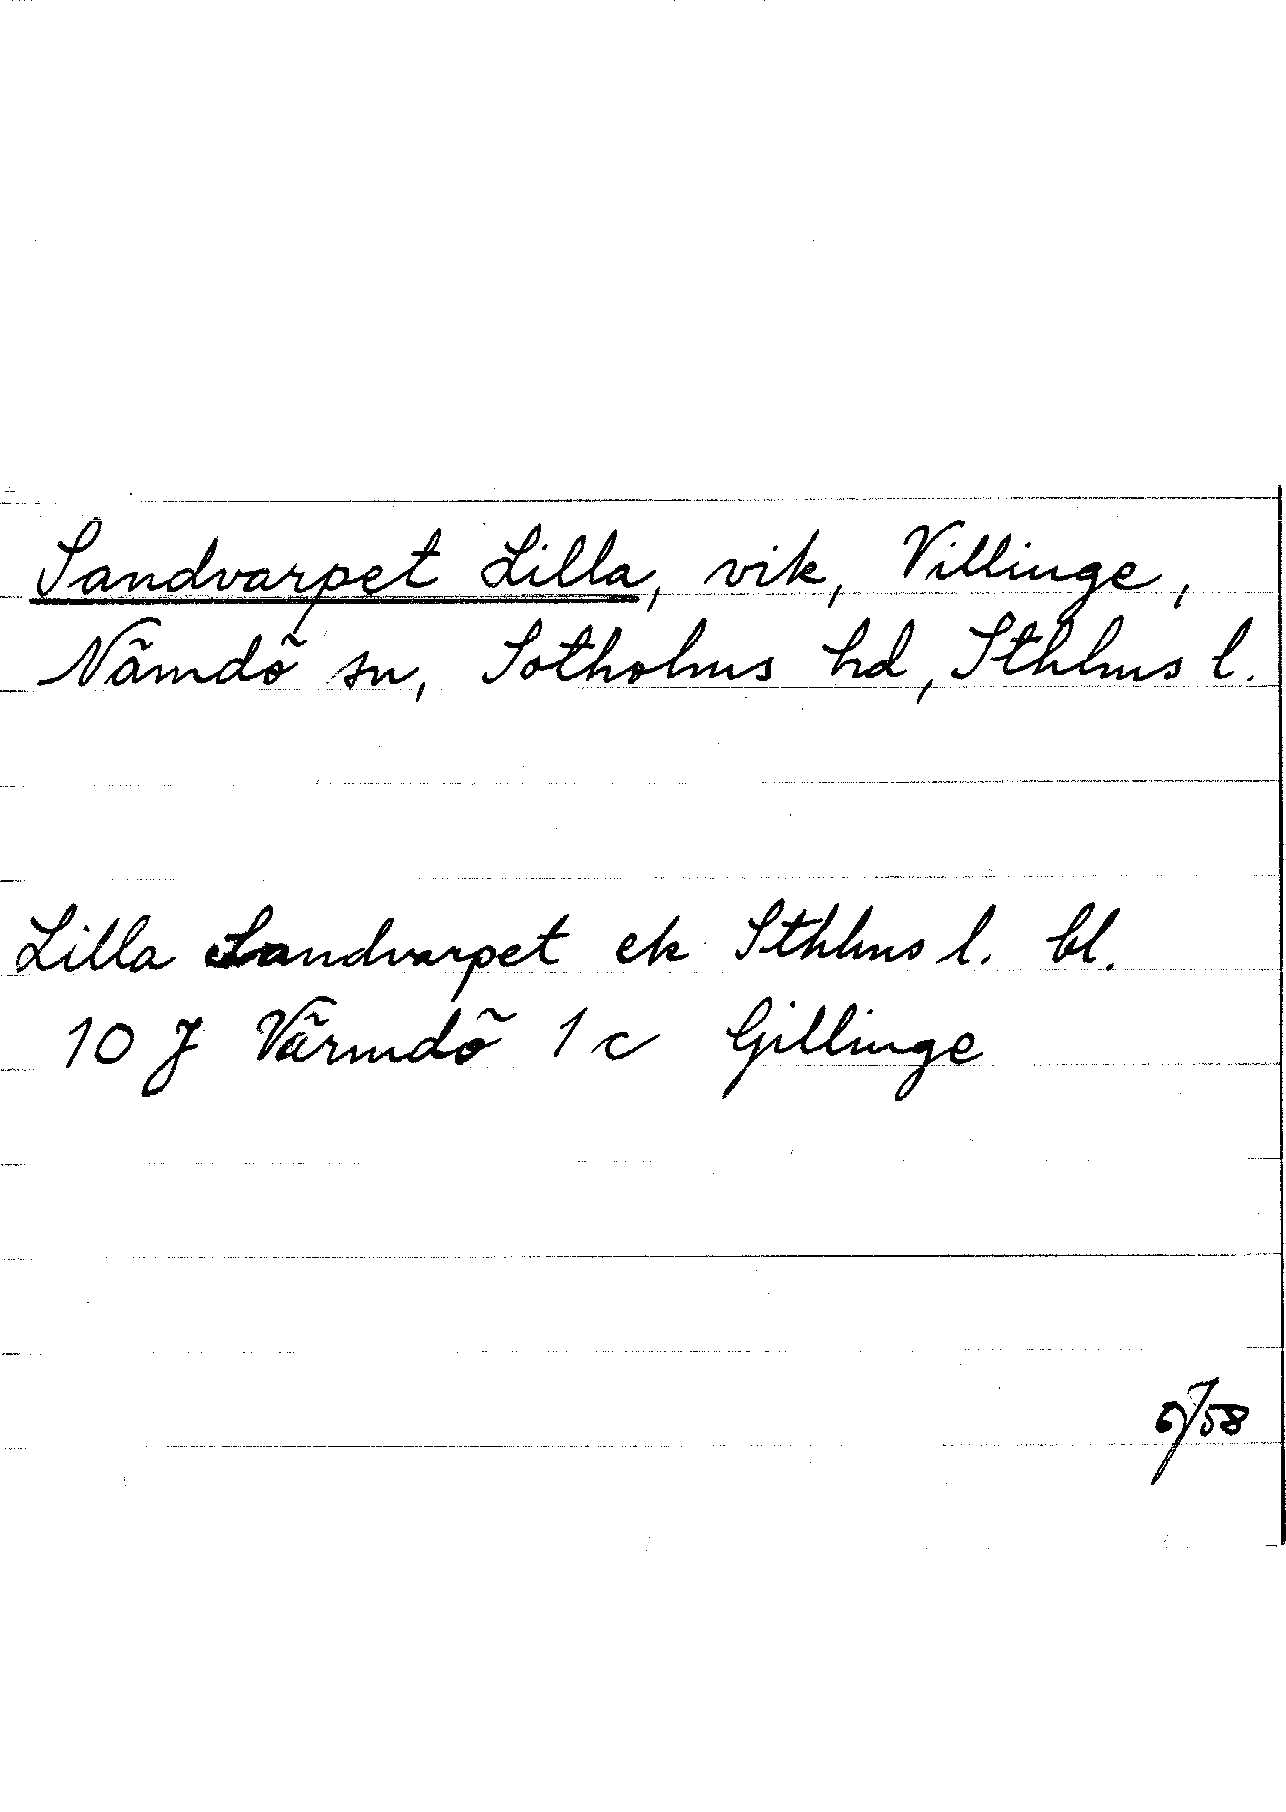 Sandvarpet Lilla, vik, Villinge,
Nämdö sn, Sotholms hd, Sthlms l.
Lilla Sandvarpet ek Sthlms l. bl.
10 J Värmdö 1 c Gillinge
6/58